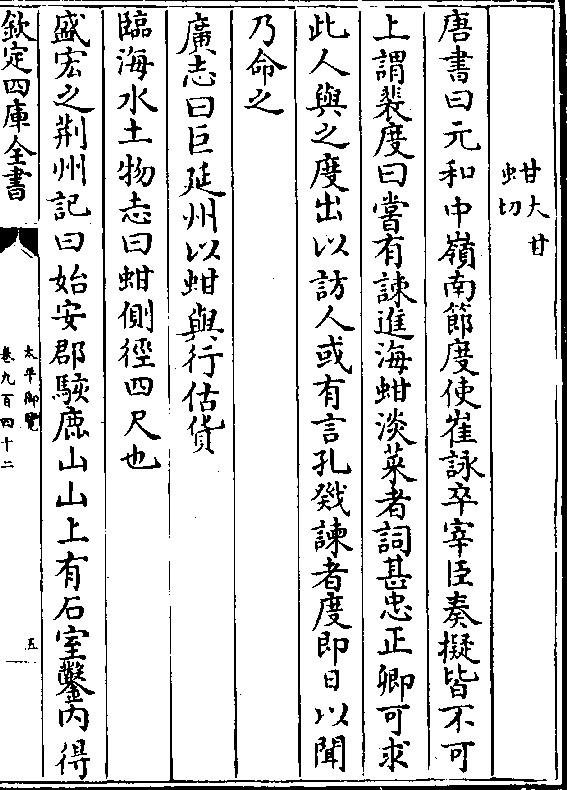 蚶大甘切
唐書曰元和中嶺南節度使崔詠卒宰臣奏擬皆不可
上謂裴度曰嘗有諫進海蚶淡菜者詞甚忠正卿可求
此人與之度出以訪人或有言孔戣諫者度即日以聞
乃命之
廣志曰巨延州以蚶與行估貨
臨海水土物志曰蚶側徑四尺也
盛宏之荆州記曰始安郡駮鹿山山上有石室鑿内得
欽定四庫全書
太平御覽
卷九百四十二
五